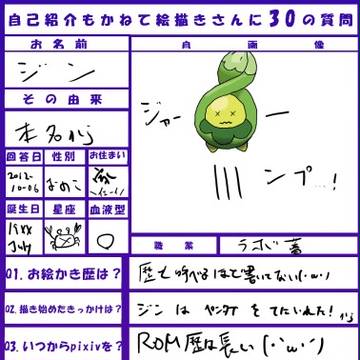 自己紹介もかねて絵描きさんに30の質問
お名前
自画像
ジン
その由来
本名から
ジャー
ー
ンプ…!
回答日
性別
お住まい
2012-
10-06
おのこ
誕生日
星座
血液型
19XX
July
○
職業
01. お絵かき歴は?
歴と呼べるほど書いてない(・ω・)
02. 描き始めたきっかけは?
ジン は ペンタブ を てにいれた!
03. いつからpixivを?
ROM歴は長い(・ω・)